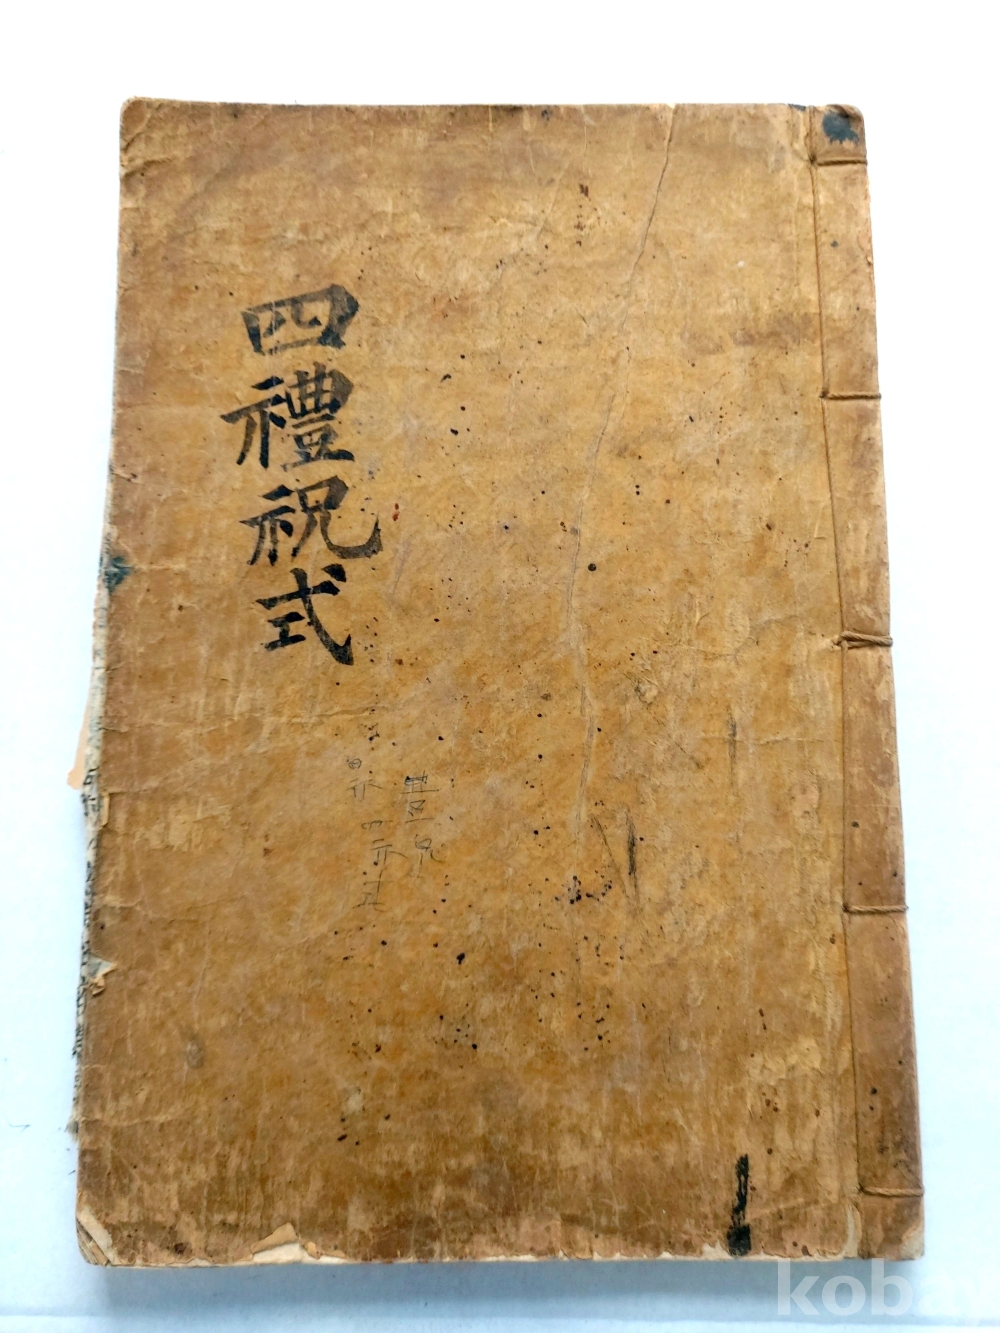 四禮祝式
kobay